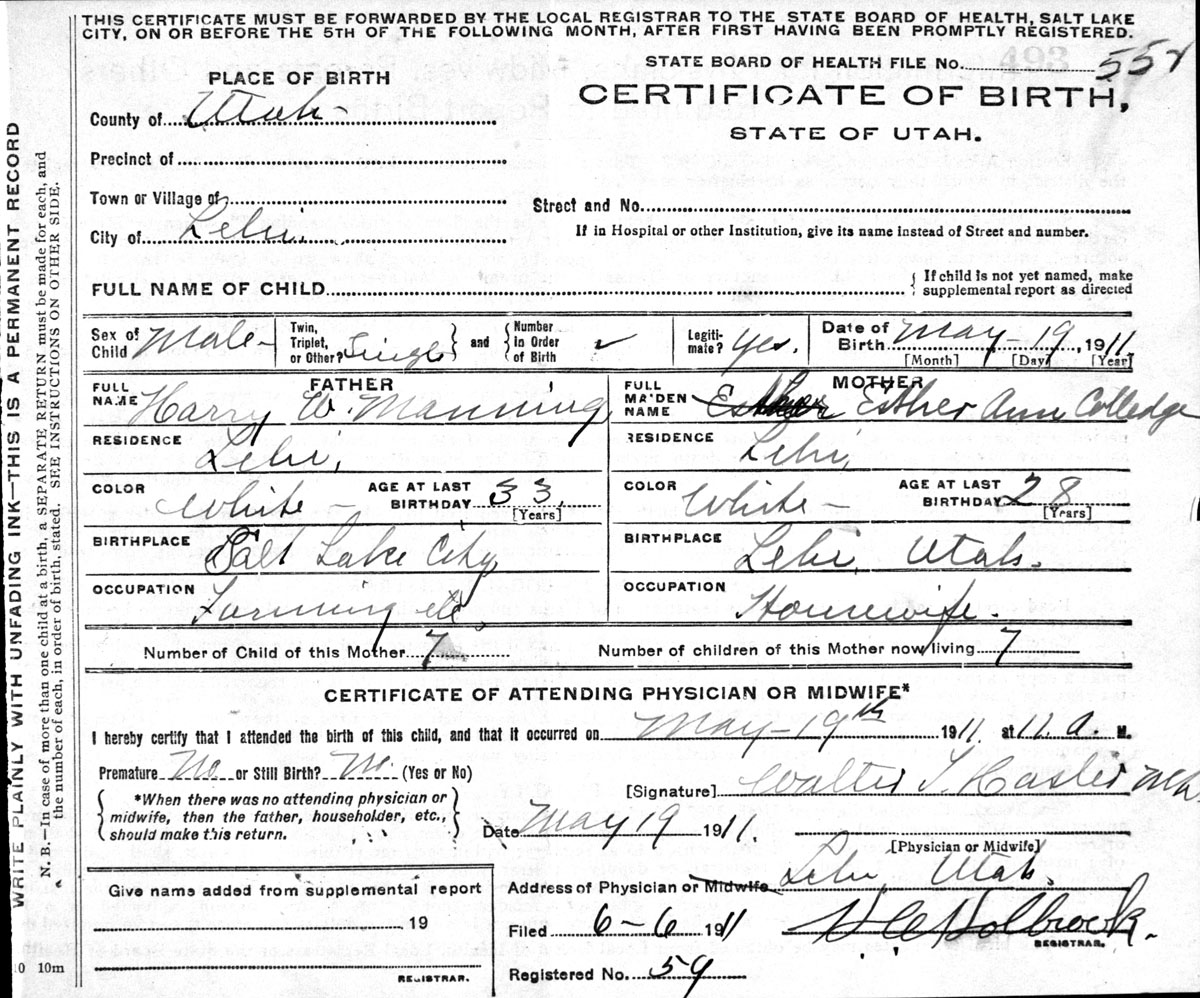 THIS CERTIFICATE MUST BE FORWARDED BY THE LOCAL REGISTRAR TO THE STATE BOARD OF HEALTH, SALT LAKE
CITY, ON OR BEFORE THE 5TH OF THE FOLLOWING MONTH, AFTER FIRST HAVING BEEN PROMPTLY REGISTERED.
WRITE PLAINLY WITH UNFADING INK—THIS IS A PERMANENT RECORD
N. B.—In case of more than one child at a birth, a SEPARATE RETURN must be made for each, and
the number of each, in order of birth, stated. SEE INSTRUCTIONS ON OTHER SIDE.
STATE BOARD OF HEALTH FILE No. 493
PLACE OF BIRTH
CERTIFICATE OF BIRTH,
STATE OF UTAH.
County of Utah-
Precinct of
Town or Village of
Street and No.
City of Lehi.
If in Hospital or other Institution, give its name instead of Street and number.
FULL NAME OF CHILD
If child is not yet named, make
supplemental report as directed
Sex of Child Male-
Twin, Triplet, or Other? Single
and Number in Order of Birth
Legitimate? Yes.
Date of Birth May-19, 1911
[Month] [Day] [Year]
FATHER
FULL NAME Harry W. Manning
RESIDENCE Lehi,
COLOR White-
AGE AT LAST BIRTHDAY 33
[Years]
BIRTHPLACE Salt Lake City
OCCUPATION Farming etc.
MOTHER
FULL MAIDEN NAME Esther Esther Ann Colledge
RESIDENCE Lehi,
COLOR White-
AGE AT LAST BIRTHDAY 28
[Years]
BIRTHPLACE Lehi, Utah.
OCCUPATION Housewife.
Number of Child of this Mother 7
Number of children of this Mother now living 7
CERTIFICATE OF ATTENDING PHYSICIAN OR MIDWIFE*
I hereby certify that I attended the birth of this child, and that it occurred on May-19th 1911 at 11. a. M.
Premature No or Still Birth? No. (Yes or No)
[Signature] Walter T. Hasler
*When there was no attending physician or
midwife, then the father, householder, etc.,
should make this return.
Date May 19 1911.
[Physician or Midwife]
Address of Physician or Midwife Lehi, Utah.
Give name added from supplemental report
19
REGISTRAR.
Filed 6-6 1911
Holbrook.
REGISTRAR.
Registered No. 59
10 10m